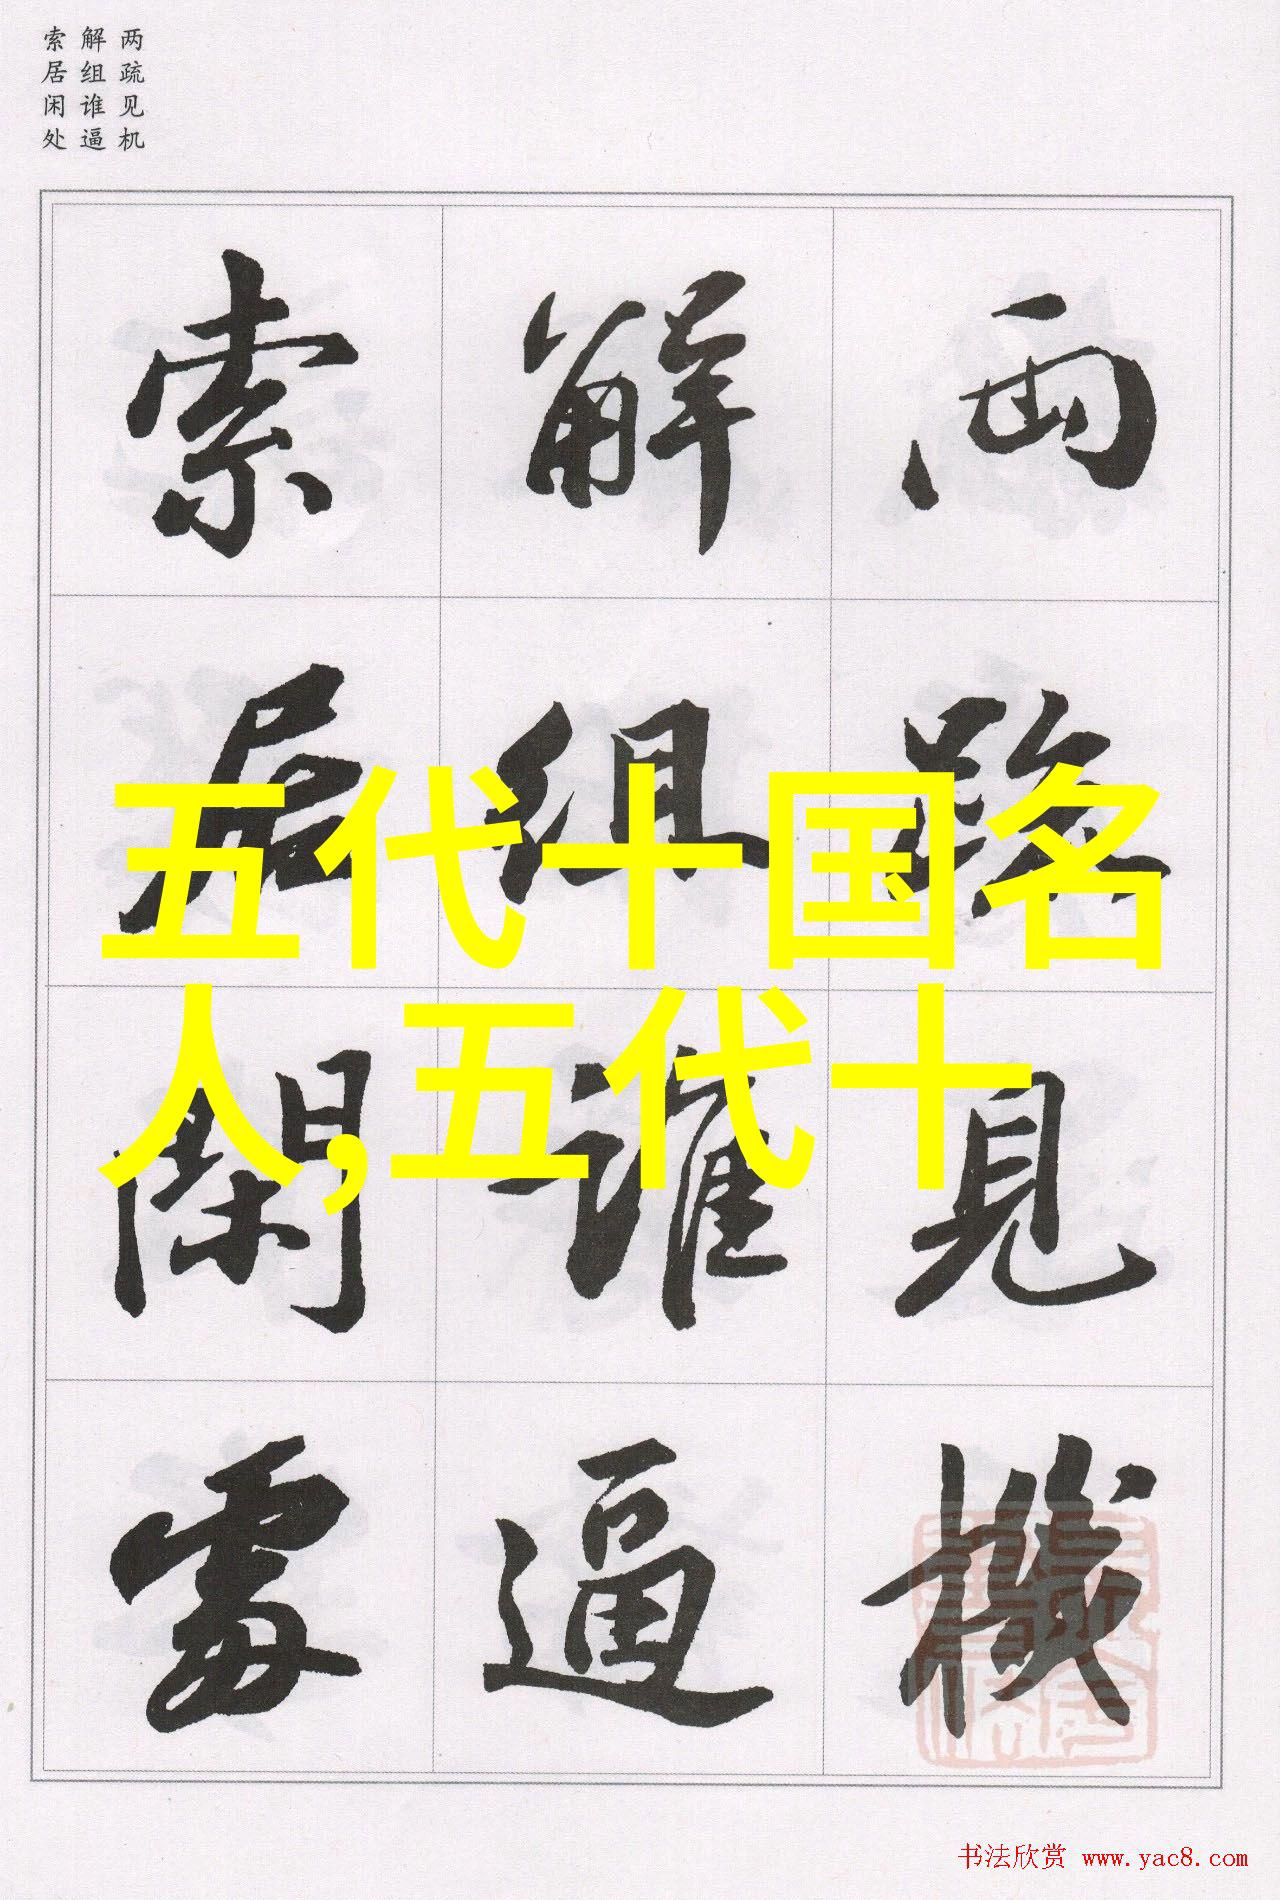 两疏见机
解组谁逼
索居闲处
两疏見機
解組誰逼
索居閑處
五代十国名
人,五代十
书法欣赏 www.yac8.com